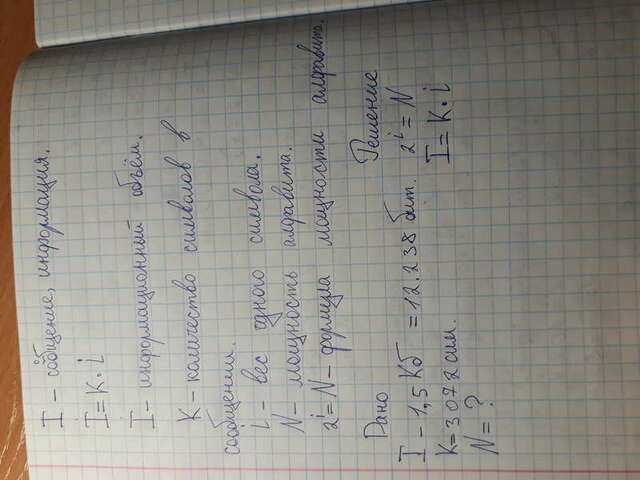 I - сообщение, информация.
I = K · i
I - информационный объём.
K - количество символов в
сообщении.
i - вес одного символа.
N - мощность алфавита.
2^i = N - формула мощности алфавита.
Дано
Решение
I - 1,5 Кб = 12.238 бит.
2^i = N
K = 3072 сим.
I = K · i
N = ?